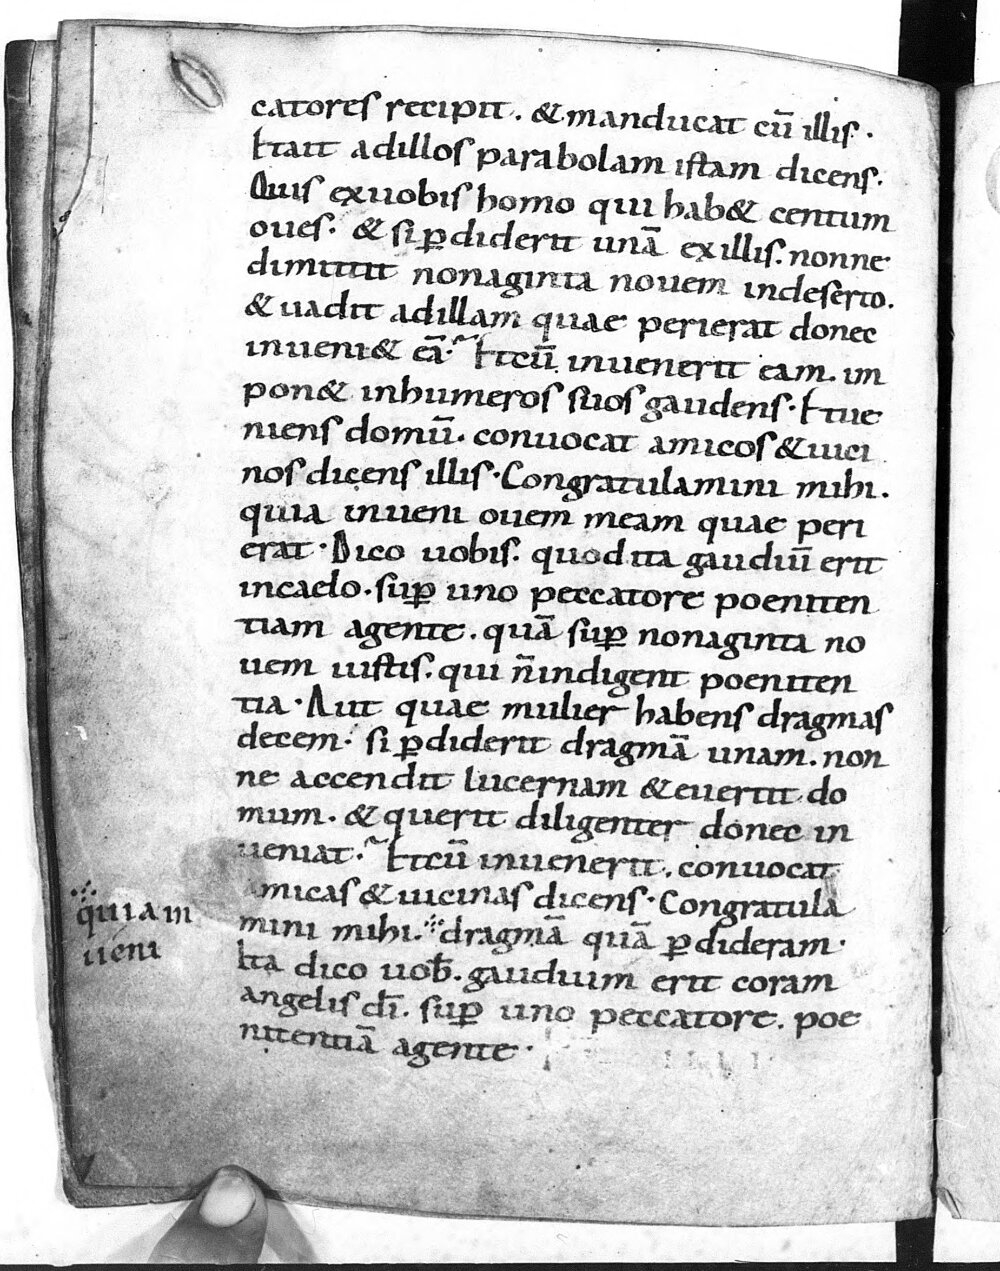 catores recipit. & manducat cū illis.
Et ait ad illos parabolam istam dicens.
Quis ex uobis homo qui hab& centum
oues. & si p̱diderit unā ex illis. nonne
dimittit nonaginta nouem in deserto.
& uadit ad illam quae perierat donec
inueni& eā. Et cū inuenerit eam. im
pon& in humeros suos gaudens. Et ue
niens domū. conuocat amicos & uici
nos dicens illis. Congratulamini mihi.
quia inueni ouem meam quae peri
erat. Dico uobis. quod ita gaudiū erit
in caelo. sup̱ uno peccatore poeniten
tiam agente. quā sup̱ nonaginta no
uem iustis. qui n̄ indigent poeniten
tia. Aut quae mulier habens dragmas
decem. si p̱diderit dragmā unam. non
ne accendit lucernam & euertit do
mum. & querit diligenter donec in
ueniat. Et cū inuenerit. conuocat
amicas & uicinas dicens. Congratula
mini mihi. ⁘ dragmā quā p̱dideram.
⁘ quia in
ueni
Ita dico uob̄. gaudium erit coram
angelis dī. sup̱ uno peccatore. poe
nitentiā agente.